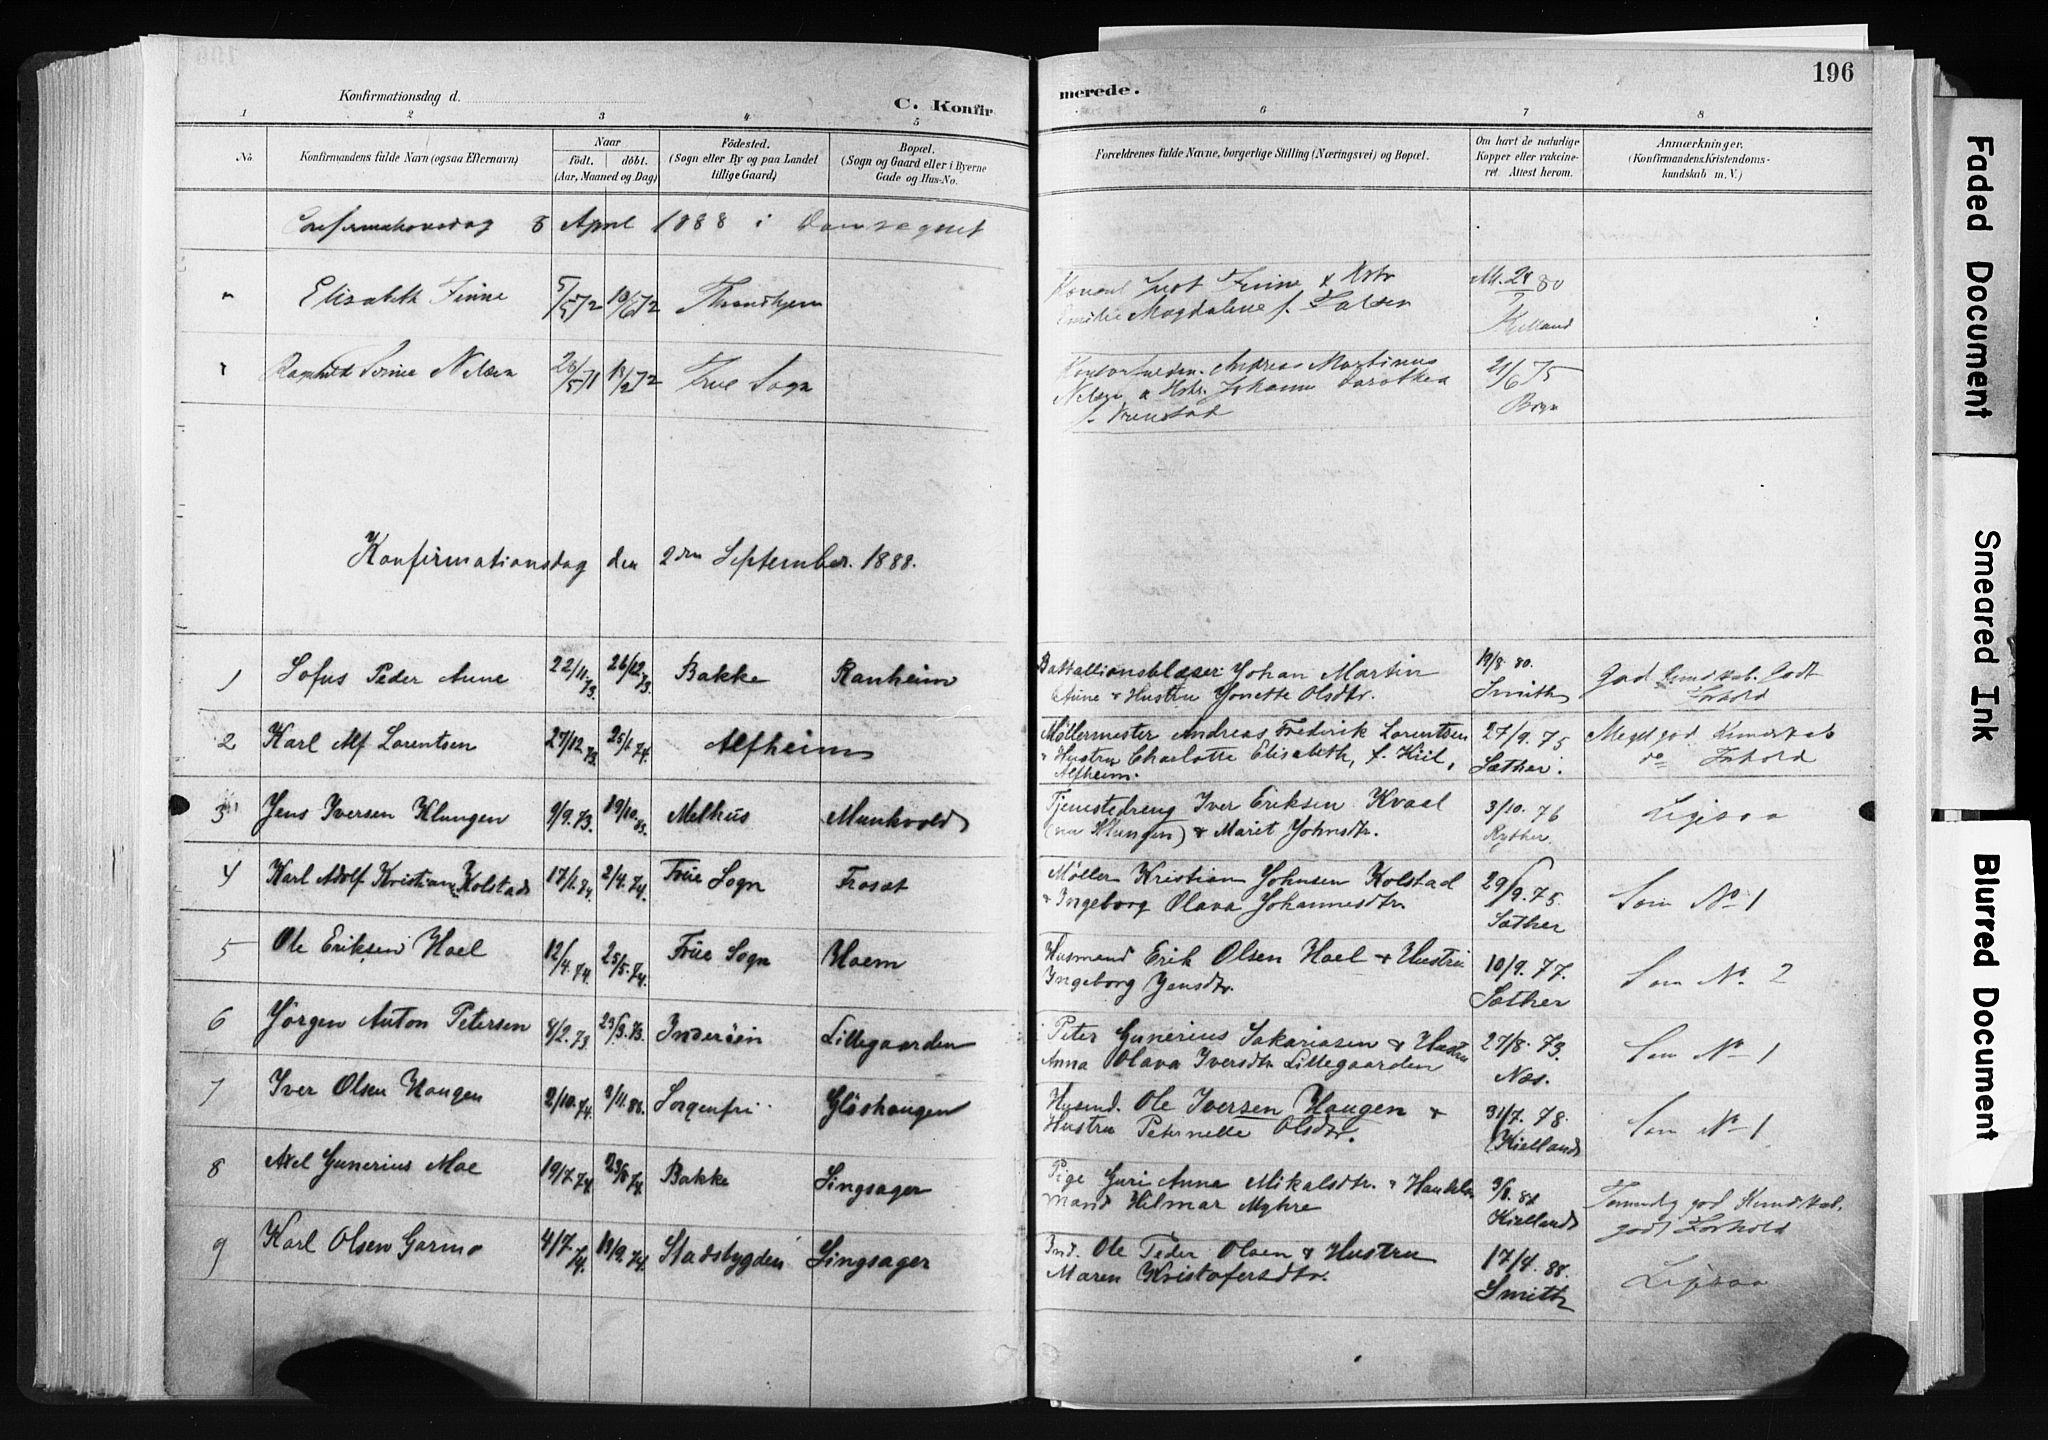 196
Konfirmationsdag d.
C. Konfirmerede.
1 2 3 4 5 6 7 8
No.
Konfirmandens fulde Navn (ogsaa Efternavn)
Naar
født. døbt.
(Aar, Maaned og Dag)
Fødested.
(Sogn eller By og paa Landet
tillige Gaard)
Bopæl.
(Sogn og Gaard eller i Byerne
Gade og Hus-No.
Forældrenes fulde Navne, borgerlige Stilling (Næringsvei) og Bopæl.
Om havt de naturlige
Kopper eller vakcine-
ret. Attest herom.
Anmærkninger.
(Konfirmandens Kristendoms-
kundskab m. V.)
Confirmationsdag 8 April 1888 i
" Elisabeth Finne 5/5 72 Throndhjem
Konsul Just Finne & Hstr
Emilie Magdalene f.
80
Kielland
" Ragnhild Nelsen 71 72 Frue Sogn
Andreas Martinus
Nelsen & Hstr. Johanna Dorothea
21/6 75
Konfirmationsdag den 2den September. 1888.
1 Lofus Peder Aune 22/11. 73. 26/12. 73. Bakke Ranheim
Battallionsblæser Johan Martin
Aune & Hustru Jonette Olsdtr.
19/8. 80.
Smith
God Kundskab. Godt
Forhold
2 Karl Alf Lorentsen 27/12. 73. 25/1. 74. Alfheim
Møllermester Andreas Frederik Lorentsen
& Hustru Charlotte Elisabeth, f. Kiil,
Alfheim.
27/9. 75
Sæther.
Meget god Kundskab
do Forhold
3 Jens Iversen Klungen 9/9. 73. 19/10. Melhus Munkvold
Tjenstedreng Iver Eriksen Kvaal
(nu Klungen) & Marit Johnsdtr.
3/10. 76
Ligesaa
4 Karl Adolf Kristian Kolstad 17/1. 74. 2/4. 74. Frue Sogn Froset
Møller Kristian Johnsen Kolstad
& Ingeborg Olava Johannesdtr.
29/9. 75.
Sæther
Som No 1
5 Ole Eriksen Hoel 12/4. 74. 25/5. 74. Frue Sogn Hoem
Husmand Erik Olsen Hoel & Hustru
Ingeborg Jensdtr.
10/9. 77.
Sæther
Som No 2
6 Jørgen Anton Petersen 8/2. 73. 23/3. 73. Inderøen Lillegaarden
Peter Gunerius Sakariasen & Hustru
Anna Olava Iversdtr Lillegaarden
27/8. 73.
Næs.
Som No 1
7 Iver Olsen Haugen 2/10. 74. Sorgenfri Gløshaugen
Husmd. Ole Iversen Haugen &
Hustru Peternelle Olsdtr.
31/7. 78.
Kielland
Som No 1
8 Axel Gunerius Moe 19/7. 74. 23/8 74. Bakke Singsager
Pige Guri Anna Mikalsdtr. & Handels
mand Hilmar Myhre
Kielland
Temmelig god Kundskab.
godt Forhold
9 Karl Olsen Garmo 4/7. 74. 13/9. 74. Stadsbygden Singsager
Ind. Ole Peder Olsen & Hustru
Maren Kristofersdtr.
17/4. 88.
Smith
Ligesaa
Faded Document
Smeared Ink
Blurred Document